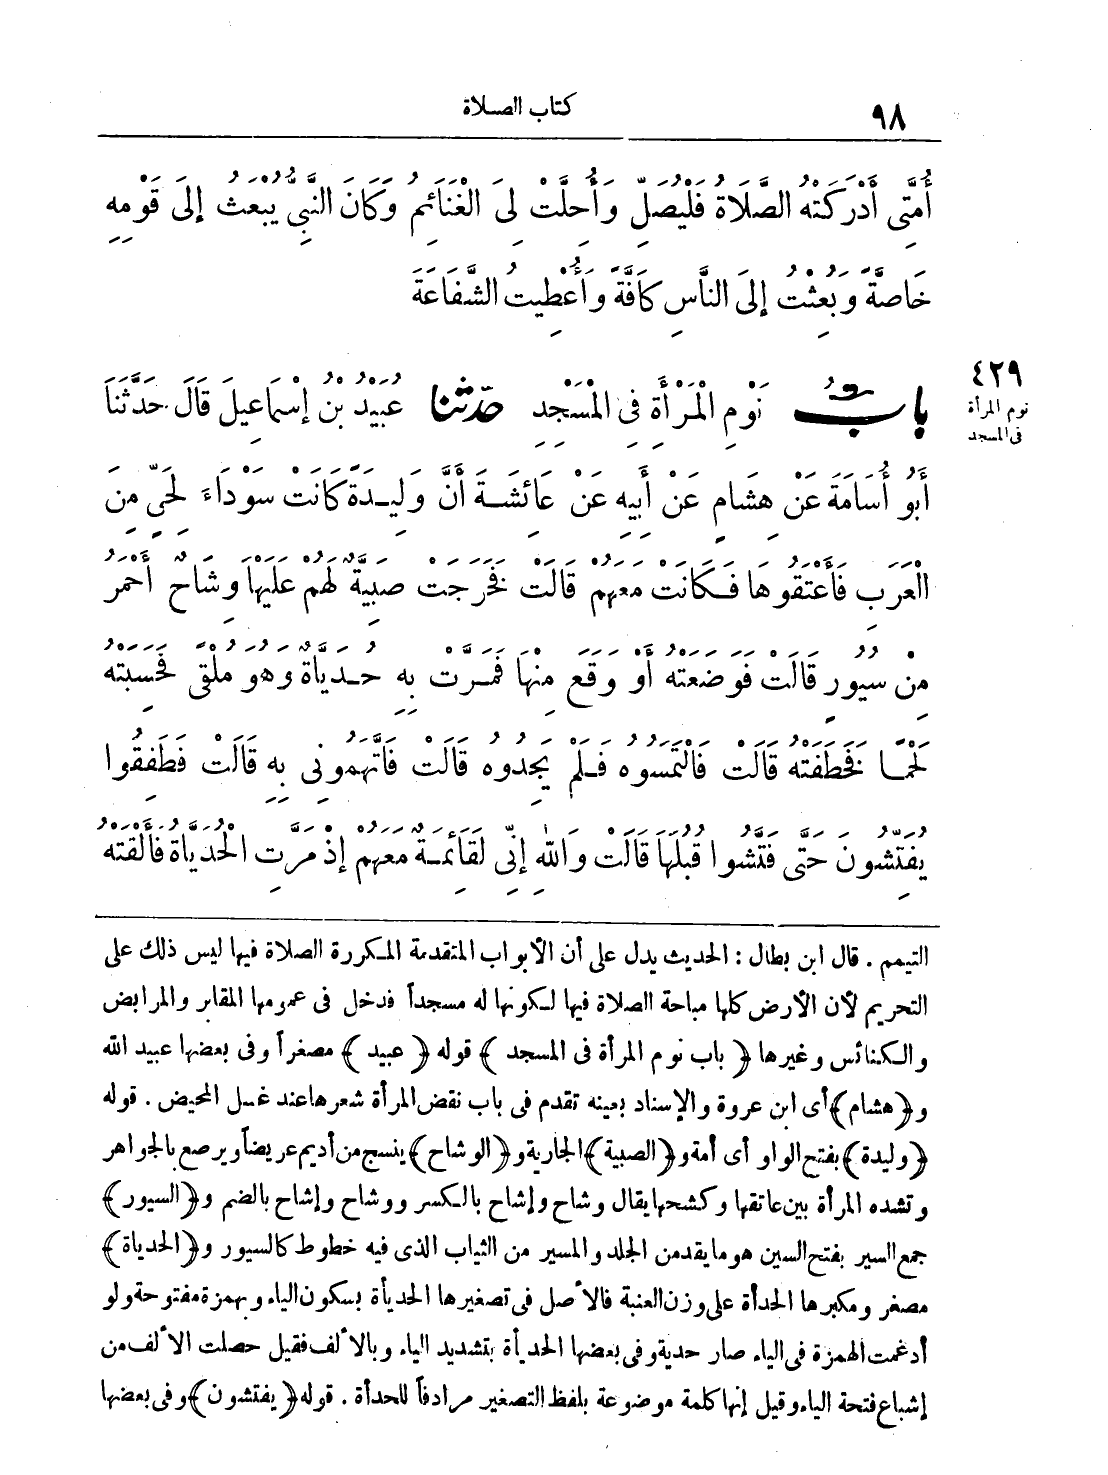 ٩٨
كتاب الصلاة
أُمَّتِي أَدْرَكَتْهُ الصَّلَاةُ فَلْيُصَلِّ وَأُحِلَّتْ لِيَ الْغَنَائِمُ وَكَانَ النَّبِيُّ يُبْعَثُ إِلَى قَوْمِهِ
خَاصَّةً وَبُعِثْتُ إِلَى النَّاسِ كَافَّةً وَأُعْطِيتُ الشَّفَاعَةَ
٤٢٩
نوم المرأة
فى المسجد
بابُ نَوْمِ الْمَرْأَةِ فِي الْمَسْجِدِ حَدَّثَنَا عُبَيْدُ بْنُ إِسْمَاعِيلَ قَالَ حَدَّثَنَا
أَبُو أُسَامَةَ عَنْ هِشَامٍ عَنْ أَبِيهِ عَنْ عَائِشَةَ أَنَّ وَلِيدَةً كَانَتْ سَوْدَاءَ لِحَيٍّ مِنَ
الْعَرَبِ فَأَعْتَقُوهَا فَكَانَتْ مَعَهُمْ قَالَتْ فَخَرَجَتْ صَبِيَّةٌ لَهُمْ عَلَيْهَا وِشَاحٌ أَحْمَرُ
مِنْ سُيُورٍ قَالَتْ فَوَضَعَتْهُ أَوْ وَقَعَ مِنْهَا فَمَرَّتْ بِهِ حُدَيَّاةٌ وَهُوَ مُلْقًى فَحَسِبَتْهُ
لَحْمًا فَخَطَفَتْهُ قَالَتْ فَالْتَمَسُوهُ فَلَمْ يَجِدُوهُ قَالَتْ فَاتَّهَمُونِي بِهِ قَالَتْ فَطَفِقُوا
يُفَتِّشُونَ حَتَّى فَتَّشُوا قُبُلَهَا قَالَتْ وَاللهِ إِنِّي لَقَائِمَةٌ مَعَهُمْ إِذْ مَرَّتِ الْحُدَيَّاةُ فَأَلْقَتْهُ
التيمم . قال ابن بطال : الحديث يدل على أن الأبواب المتقدمة المكررة الصلاة فيها ليس ذلك على
التحريم لأن الأرض كلها مباحة الصلاة فيها لكونها له مسجداً فدخل فى عمومها المقابر والمرابض
والكنائس وغيرها ﴿ باب نوم المرأة فى المسجد ﴾ قوله ﴿ عبيد ﴾ مصغراً وفى بعضها عبيد الله
و﴿هشام﴾ أى ابن عروة والإسناد بعينه تقدم فى باب نقض المرأة شعرها عند غسل المحيض . قوله
﴿وليدة﴾ بفتح الواو أى أمة و﴿الصبية﴾ الجارية و﴿الوشاح﴾ ينسج من أديم عريضاً ويرصع بالجواهر
وتشده المرأة بين عاتقها وكشحها يقال وشاح وإشاح بالكسر ووشاح وإشاح بالضم و﴿السيور﴾
جمع السير بفتح السين هو ما يقد من الجلد والمسير من الثياب الذى فيه خطوط كالسيور و﴿الحدياة﴾
مصغر ومكبرها الحدأة على وزن العنبة فالأصل فى تصغيرها الحديأة بسكون الياء وبهمزة مفتوحة ولو
أدغمت الهمزة فى الياء صار حدية وفى بعضها الحديأة بتشديد الياء وبالألف فقيل حصلت الألف من
إشباع فتحة الياء وقيل إنها كلمة موضوعة بلفظ التصغير مرادفاً للحدأة . قوله ﴿يفتشون﴾ وفى بعضها